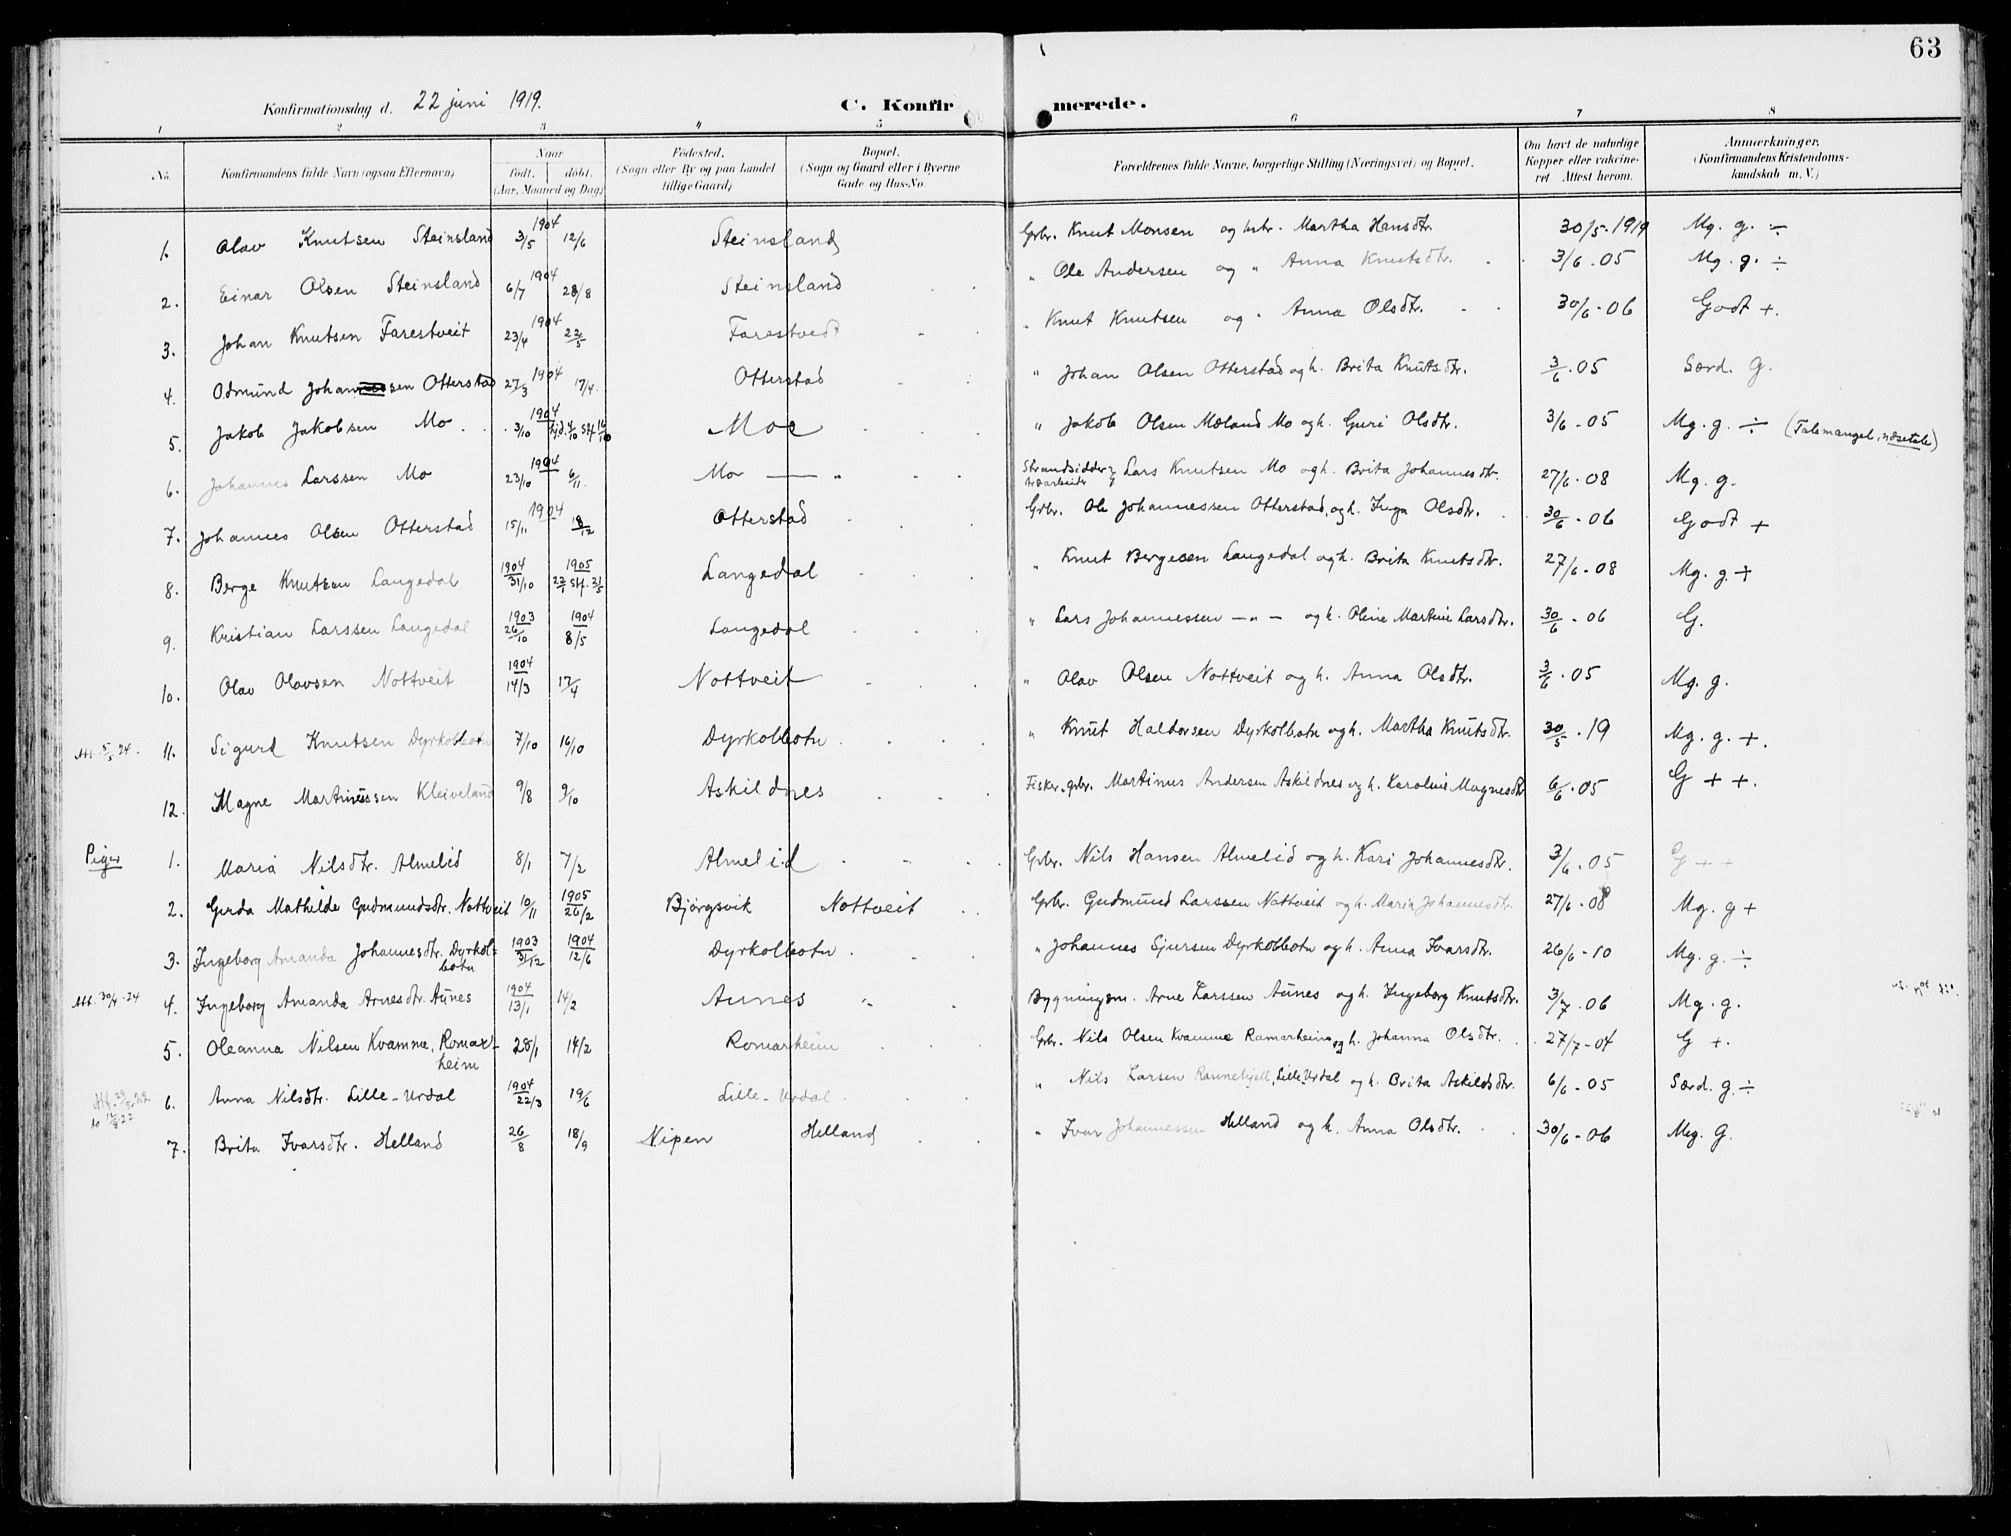 63
Konfirmationsdag d. 22 juni 1919. C. Konfirmerede.
1 2 3 4 5 6 7 8
No. Konfirmandens fulde Navn (ogsaa Efternavn) Naar født, døbt. (Aar, Maaned og Dag) Fødested. (Sogn eller By og paa Landet tillige Gaard) Bopæl. (Sogn og Gaard eller i Byerne Gade og Hus-No. Forældrenes fulde Navne, borgerlige Stilling (Næringsvei) og Bopæl. Om havt de naturlige Kopper eller vakcineret. Attest herom. Anmærkninger. (Konfirmandens Kristendomskundskab m. V.)
1. Olav Knutsen Steinsland 1904 3/5 12/6 Steinsland Grbr. Knut Monsen og hstr. Martha Hansdtr. 30/5-1919 Mg. g. ÷
2. Einar Olsen Steinsland 1904 6/7 28/8 Steinsland " Ole Andersen og " Anna Knutsdtr. 3/6-05 Mg. g. ÷
3. Johan Knutsen Farestveit 1904 23/4 22/5 Farestvedt " Knut Knutsen og " Anna Olsdtr. 30/6-06 Godt +.
4. Odmund Johansen Otterstad 1904 27/3 17/4. Otterstad " Johan Olsen Otterstad og h. Brita Knutsdtr. 3/6.05 Særd. g.
5. Jakob Jakobsen Mo 1904 3/10 Hjd. 4/10 Stf. 16/10 Moe " Jakob Olsen Mæland Mo og h. Guri Olsdtr. 3/6-05 Mg. g. ÷ (Talemangel, næsetale)
6. Johannes Larssen Mo 1904 23/10 6/11 Mo — " Strandsidder træarbeider Lars Knutsen Mo og h. Brita Johannesdtr. 27/6-08 Mg. g.
7. Johannes Olsen Otterstad 1904 15/11 18/12 Otterstad Grbr. Ole Johannessen Otterstad, og h. Inga Olsdtr. 30/6-06 Godt +
8. Berge Knutsen Langedal 1904 31/10 1905 Stf. Langedal " Knut Bergesen Langedal og h. Brita Knutsdtr. 27/6-08 Mg. g. +
9. Kristian Larssen Langedal 1903 26/10 1904 8/5 Langedal " Lars Johannessen —"— og h. Oline Martine Larsdtr. 30/6-06 G.
10. Olav Olavsen Nottveit 1904 14/3 17/4 Nottveit " Olav Olsen Nottveit og h. Anna Olsdtr. 3/6.05 Mg. g.
Att. 5/5 24. 11. Sigurd Knutsen Dyrkolbotn 7/10 16/10 Dyrkolbotn " Knut Haldorsen Dyrkolbotn og h. Martha Knutsdtr. 30/5.19 Mg. g. +.
12. Magne Martinussen Kleiveland 9/8 9/10 Askildnes Fisker, grbr. Martinus Andersen Askildnes og h. Karoline Magnesdtr 6/6.05 G + +.
Piger 1. Maria Nilsdtr. Almelid 8/1 7/2 Almelid Grbr. Nils Hansen Almelid og h. Kari Johannesdtr. 3/6-05 G + +
2. Gerda Mathilde Gudmundsdtr. Nottveit 10/11 1905 26/2 Bjørgsvik Nottveit Grbr. Gudmund Larssen Nottveit og h. Maria Johannesdtr. 27/6-08 Mg. g +
3. Ingeborg Amanda Johannesdtr. Dyrkolbotn 1903 31/12 1904 12/6 Dyrkolbotn " Johannes Sjursen Dyrkolbotn og h. Anna Ivarsdtr. 26/6-10 Mg. g. ÷
Att. 30/4-24 4. Ingeborg Amanda Arnesdtr. Aunes 1904 13/1 14/2 Aunes " Bygningsm. Arne Larssen Aunes og h. Ingeborg Knutsdtr. 3/7.06 Mg. g.
5. Oleanna Nilsen Kvamme, Romarheim 28/1 14/2 Romarheim Grbr. Nils Olsen Kvamme Romarheim og h. Johanna Olsdtr. 27/7-04 G +.
6. Anna Nilsdtr. Lille-Urdal 1904 22/3 19/6 Lille-Urdal " Nils Larsen Rannekjell, Lille Urdal og h. Brita Askildsdtr. 6/6-05 Særd. g ÷
7. Brita Ivarsdtr. Helland 26/8 18/9 Nipen Helland " Ivar Johannessen Helland og h. Anna Olsdtr. 30/6-06 Meg. g.